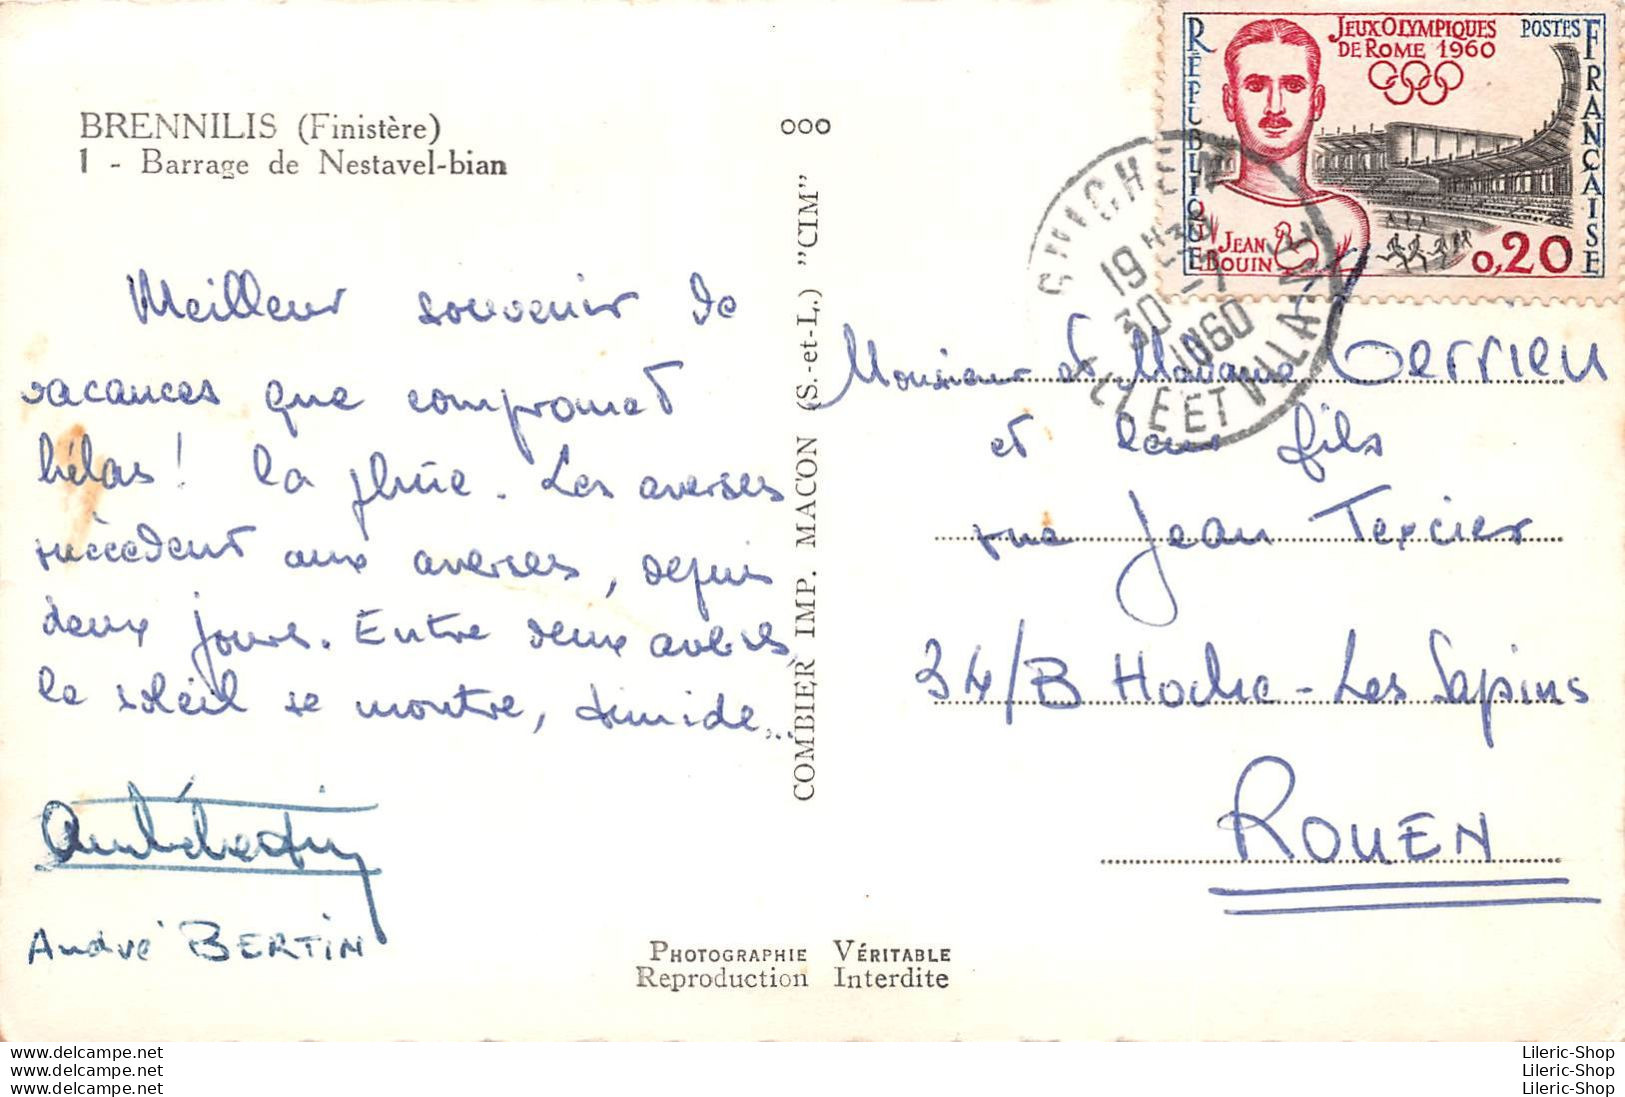 BRENNILIS (Finistère)
1 - Barrage de Nestavel-bian
Meilleur souvenir de
vacances que compromet
hélas ! la pluie. Les averses
succèdent aux averses, depuis
deux jours. Entre deux averses
le soleil se montre, timide...
André BERTIN
ooo
COMBIER IMP. MACON (S.-et-L.) "CIM"
PHOTOGRAPHIE VÉRITABLE
Reproduction Interdite
RÉPUBLIQUE
FRANÇAISE
POSTES
JEUX OLYMPIQUES
DE ROME 1960
JEAN
BOUIN
0,20
GUICHEN
19 H30
30 -7
1960
ILLE ET VILAINE
Monsieur et Madame Terrien
et leur fils
rue Jean Texcier
34/B Hoche - Les Sapins
ROUEN
www.delcampe.net
www.delcampe.net
www.delcampe.net
Lileric-Shop
Lileric-Shop
Lileric-Shop